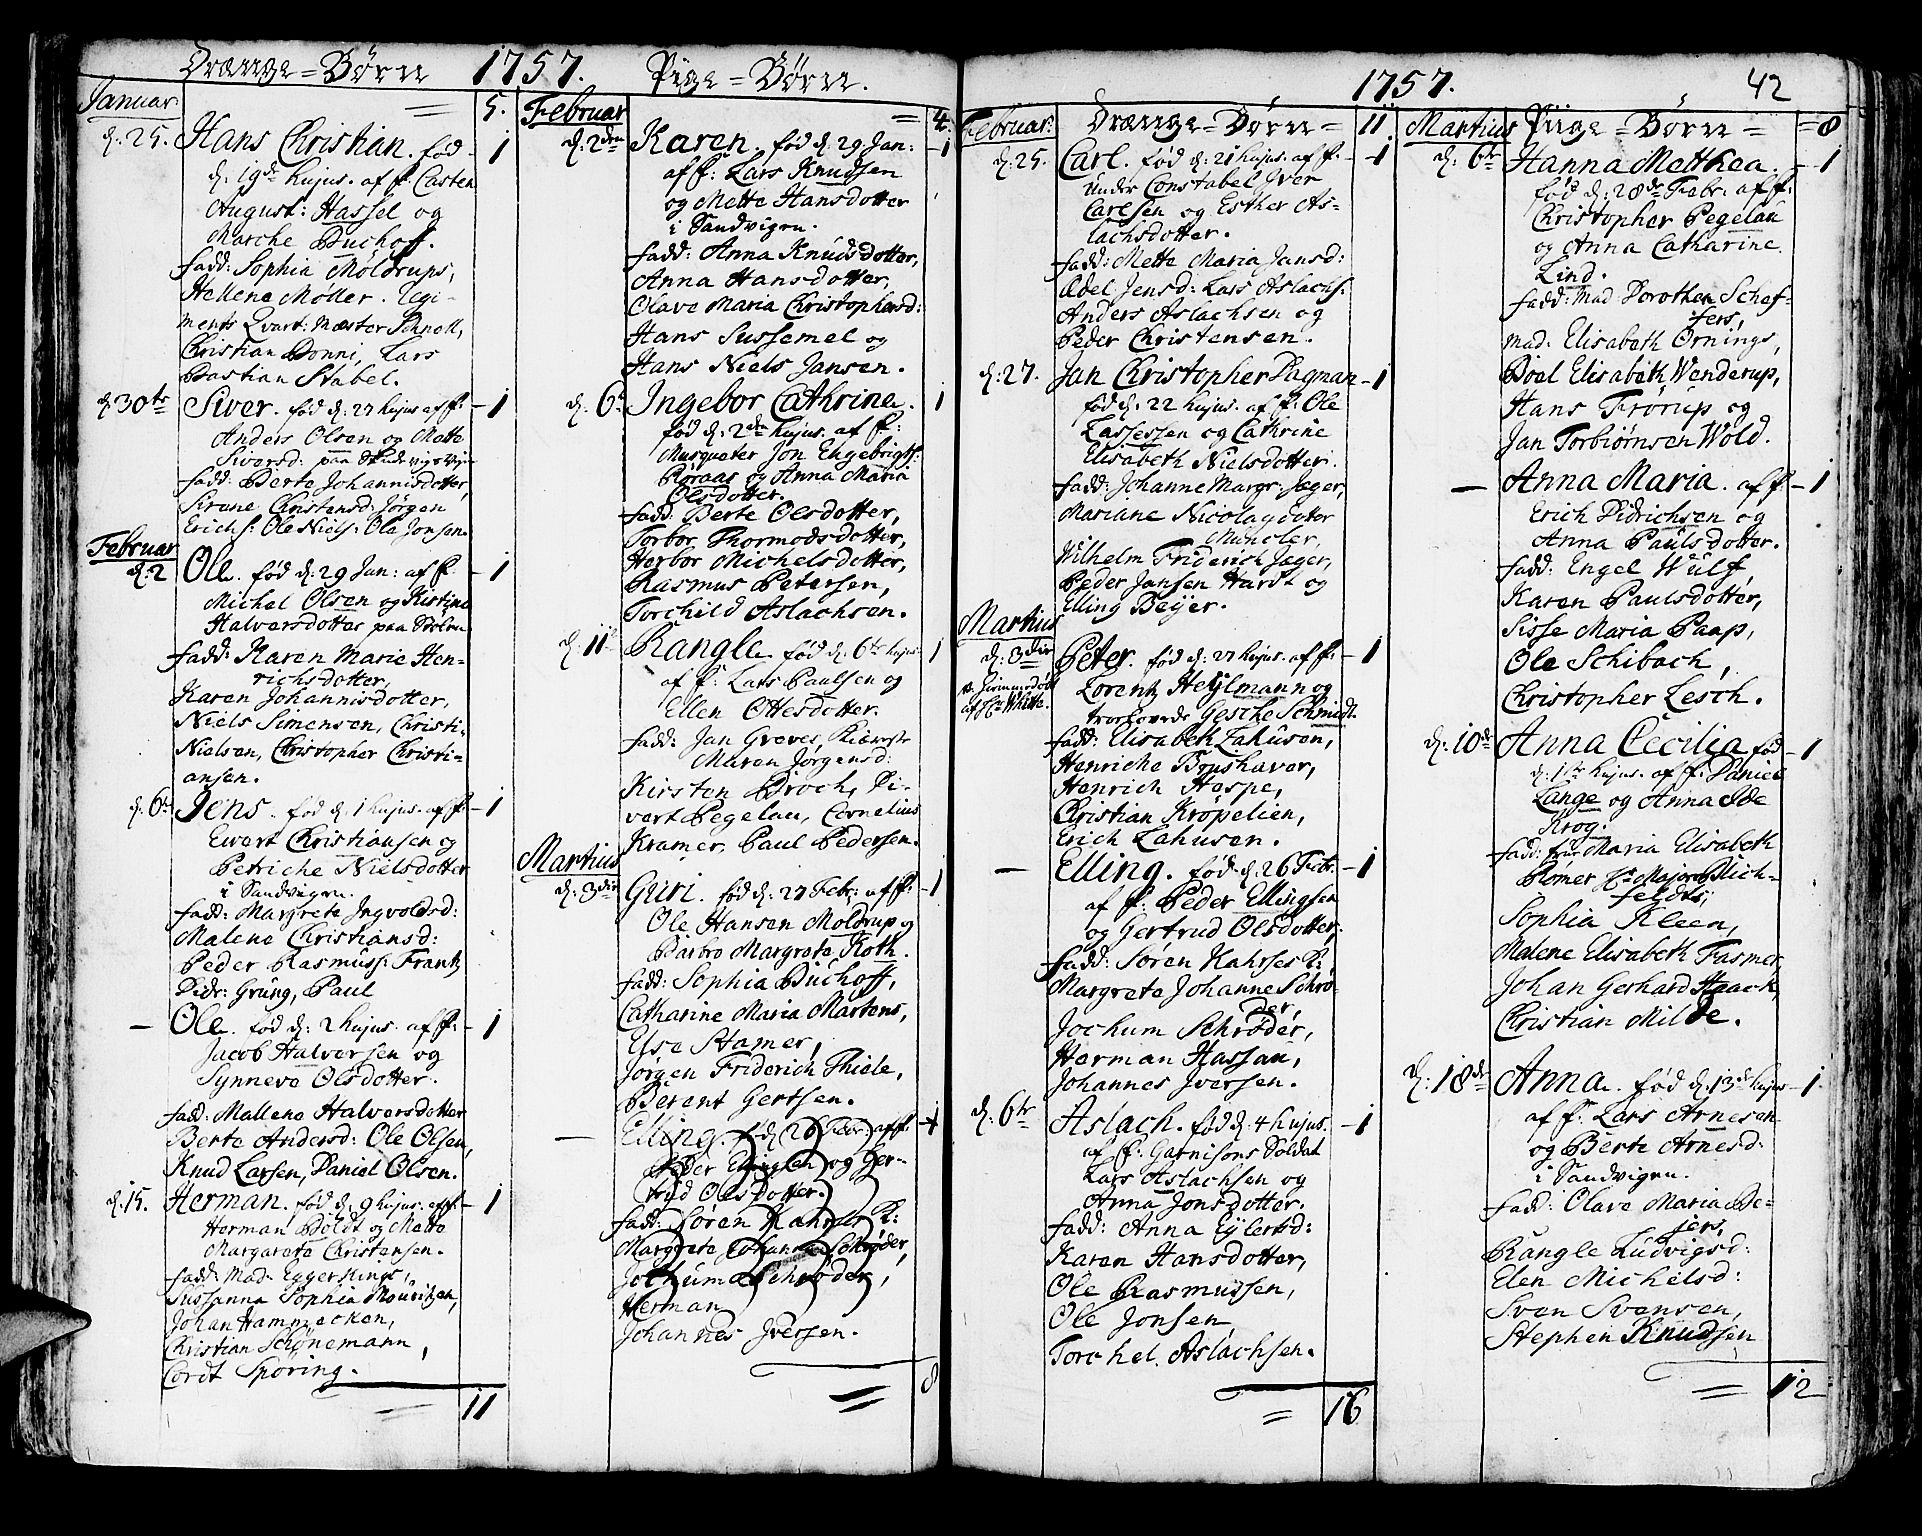 Drænge-Børn 1757. Pige-Børn.
Januar: = 5.
d: 25. Hans Christian. fød - 1
d. 19de hujus. af f. Casten
August: Hassel og
Marche Buchoff.
fadd: Sophia Møldrups,
Hellene Møller. Regi-
ments Qvart: Mæster Schnell,
Christian Donni, Lars
Bastian Stabel.
d: 30te Siver. fød d: 27 hujus af f: - 1
Anders Olsen og Mette
Siversd: paa
fadd: Berte Johannisdotter,
Sirene Christensd: Jørgen
Erich s: Ole Niels: Ole Jonsen.
Februar
d: 2 Ole. fød d: 29 Jan: af f. - 1
Michel Olsen og Kistine
Halversdotter paa
fadd: Karen Marie Hen-
richsdotter,
Karen Johannisdotter,
Niels Simensen, Christi:
Nielsen, Christopher Christi=
ansen.
d: 6te Jens. fød d. 1 hujus. af f. - 1
Ewert Christiansen og
Petriche Nielsdotter
i Sandvigen.
fadd: Margrete Ingvoldsd:
Malene Christiansd:
Peder Rasmuss: Frantz
Didr: Grüng, Paul
- Ole. fød d: 2 hujus. af f: - 1
Jacob Halversen og
Synneve Olsdotter.
fadd: Mallene Halversdotter
Berte Andersd: Ole Olsen,
Knud Larsen, Daniel Olsen.
d. 15. Herman. fød d. 9 hujus. af f. - 1
Herman Boldt og Mette
Margarete Christensen.
fadd: Mad. Eggerkings,
Sussanna Sophia Mouritzen,
Johan Hamnecken,
Christian Schønemann,
Cordt Spøring.
= 11
Februar = 4.
d: 2den Karen. fød d. 29 Jan: - 1
af f: Lars Knudsen
og Mette Hansdotter
i Sandvigen.
fadd: Anna Knudsdotter,
Anna Hansdotter,
Olave Maria Christophersd:
Hans Sussemel og
Hans Niels Jansen.
d. 6te Ingebor Cathrine. 1
fød d: 2den hujus. af f:
Musqueter Jon Engebrigts:
Røraas og Anna Maria
Olsdotter.
fadd: Berte Olsdotter,
Torbor Thormodsdotter,
Herbor Michelsdotter,
Rasmus Petersen,
Torchild Aslachsen.
d. 11te Rangle. fød d. 6te hujus 1
af f: Lars Paulsen og
Ellen Ottesdotter.
fadd: Jan Greves,
Maren Jørgensd:
Kirsten Broch, Di-
vert Pegelau, Cornelius
Kramer, Paul Pedersen.
Martius
d: 3die Guri. fød d. 27 Febr: af f: - 1
Ole Hansen Moldrup og
Barbro Margrete Roth.
fadd: Sophia Buchoff,
Catharine Maria Martens,
Else Stamer,
Jørgen Friderich Thiele,
Berent Gertsen.
- Elling. fød 26 Febr: af f: 1
Peder Ellingsen og Ger-
trud Olsdotter.
fadd: Søren Kahrses K:
Margrete Johanne Schrøder,
Jochum Schrøder,
Herman
Johannes Iversen.
= 8
1757. 42
Februar: Drænge-Børn = 11
d: 25. Carl. fød d: 21 hujus. af f. - 1
Under Constabel Iver
Carlsen og Esther As-
lachsdotter.
fadd: Mette Maria Jansd:
Edel Jensd: Lars Aslachs:
Anders Aslachsen og
Peder Christensen.
d: 27. Jan Christopher Dagman - 1
fød d: 22 hujus. af f: Ole
Lassessen og Cathrine
Elisabeth Nielsdotter.
fadd: Johanne Margr: Jæger,
Mariane Nicolaysdotter
Müncler,
Wilhelm Friderich Jæger,
Peder Jansen Hardt og
Elling Beyer.
Martius
d: 3die Peter. fød d: 27 hujus. af f: - 1
af Hr. Whitte. Lorentz Heylmann og
trorlovede Gesche Schmidt.
fadd: Elisabeth Lahusen,
Henriche Brushaver,
Henrich Haspe,
Christian Krøpelien,
Erich Lahusen.
- Elling. fød d. 26 Febr. - 1
af f: Peder Ellingsen
og Gertrud Olsdotter,
fadd: Søren Kahrses K:
Margrete Johanne Schrø-
der,
Jochum Schrøder,
Herman Hassau,
Johannes Iversen.
d: 6te Aslach. fød d: 4 hujus. - 1
af f. Garnisons Soldat
Lars Aslachsen og
Anna Jonsdotter.
fadd: Anna Eylertsd:
Karen Hansdotter,
Ole Rasmussen,
Ole Jonsen
Torchel Aslachsen.
= 16
Martius Piige-Børn = 8
d: 6te Hanna Metthea - 1
fød d: 28de Febr: af f:
Christopher Pegelau
og Anna Catharine
Lind.
fadd: Mad Dorothea Schef-
fers,
Mad: Elisabeth Ornings,
Boel Elisabeth Wenderup,
Hans Frørup og
Jan Torbiørnsen Wold.
- Anna Maria. af f. - 1
Erich Didrichsen og
Anna Paulsdotter.
fadd: Engel Wulf,
Karen Paulsdotter,
Sisse Maria Paap,
Ole Schibach,
Christopher Lesch.
d: 10de Anna Cecilia fød - 1
d: 1ste hujus. af f: Daniel
Lange og Anna Ide
Krog.
fadd: frue Maria Elisabeth
Blomer Hr Major Blich-
feldts,
Sophia Kleen,
Malene Elisabeth Fasmer,
Johan Gerhard Haack,
Christian Milde.
d: 18de Anna. fød d. 13de hujus - 1
af f: Lars Arnesen
og Berte Arnesd:
i Sandvigen.
fadd: Olave Maria Be-
jers,
Rangle Ludvigsd:
Elen Michelsd:
Sven Svensen,
Stephen Knudsen
= 12